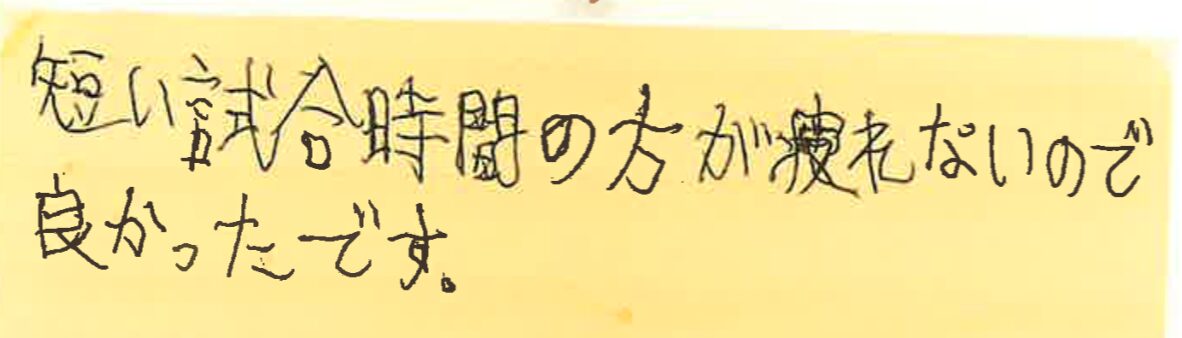 短い試合時間の方が疲れないので
良かったです。